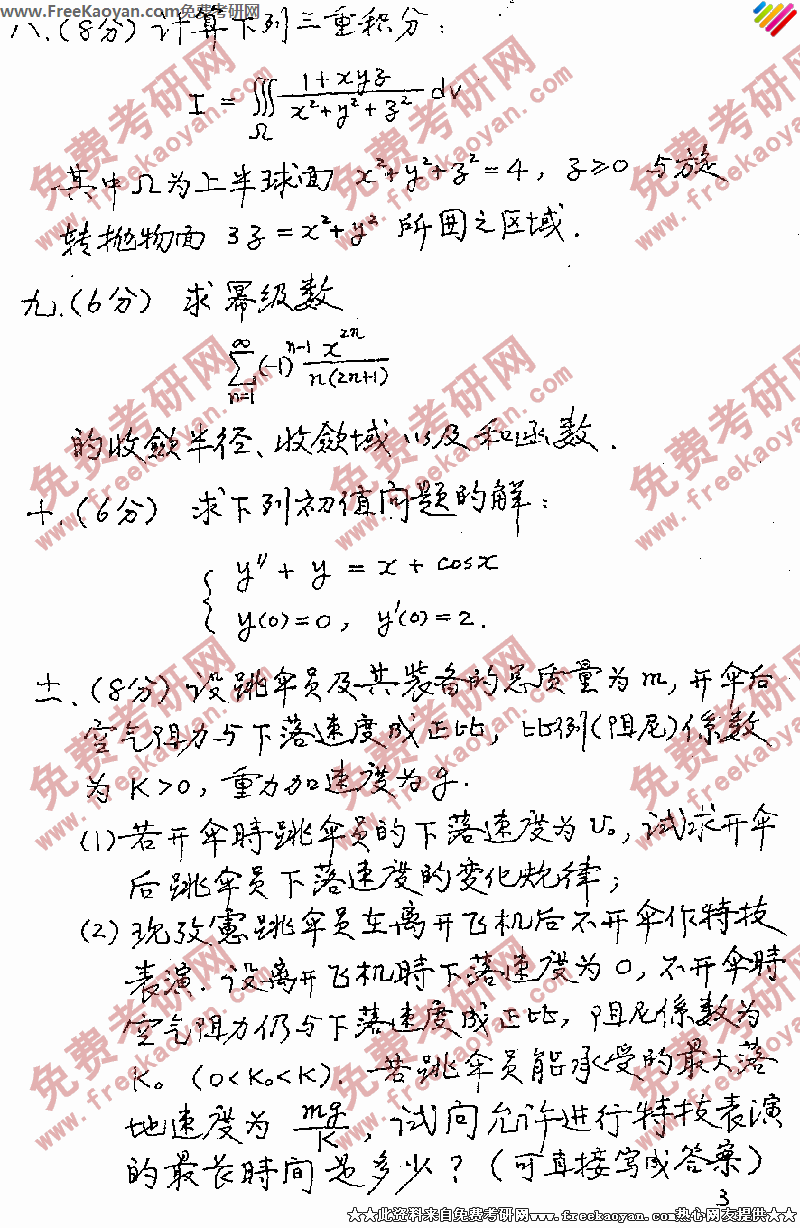 www.FreeKaoyan.com免费考研网
八.(8分) 计算下列三重积分:
I = ∭_Ω (1+xyz)/(x²+y²+z²) dv
其中Ω为上半球面 x²+y²+z²=4, z≥0 与旋
转抛物面 3z=x²+y² 所围之区域.
九.(6分) 求幂级数
∑_{n=1}^{∞} (-1)^{n-1} x^{2n}/(n(2n+1))
的收敛半径、收敛域以及和函数.
十.(6分) 求下列初值问题的解:
{ y″+y = x+cosx
y(0)=0, y′(0)=2.
十一.(8分) 设跳伞员及其装备的总质量为m, 开伞后
空气阻力与下落速度成正比, 比例(阻尼)係数
为 K>0, 重力加速度为g.
(1) 若开伞時跳伞员的下落速度为v₀, 试求开伞
后跳伞员下落速度的变化规律;
(2) 现考慮跳伞员在离开飞机后不开伞作特技
表演. 设离开飞机時下落速度为0, 不开伞時
空气阻力仍与下落速度成正比, 阻尼係数为
K₀ (0<K₀<K). 若跳伞员能承受的最大落
地速度为 mg/K, 试问允许进行特技表演
的最长時间是多少? (可直接写成答案)
3
★★此资料来自免费考研网www.freekaoyan.com热心网友提供★★
免费考研网
www.freekaoyan.com